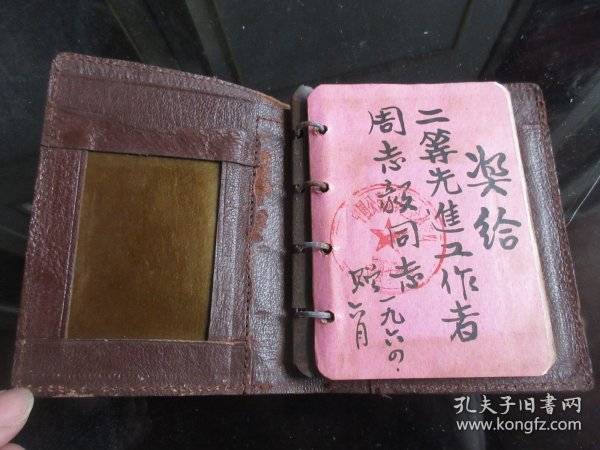 奖给
二等先進工作者
周志毅同志
赠 一九六〇.六月
孔夫子旧书网
www.kongfz.com